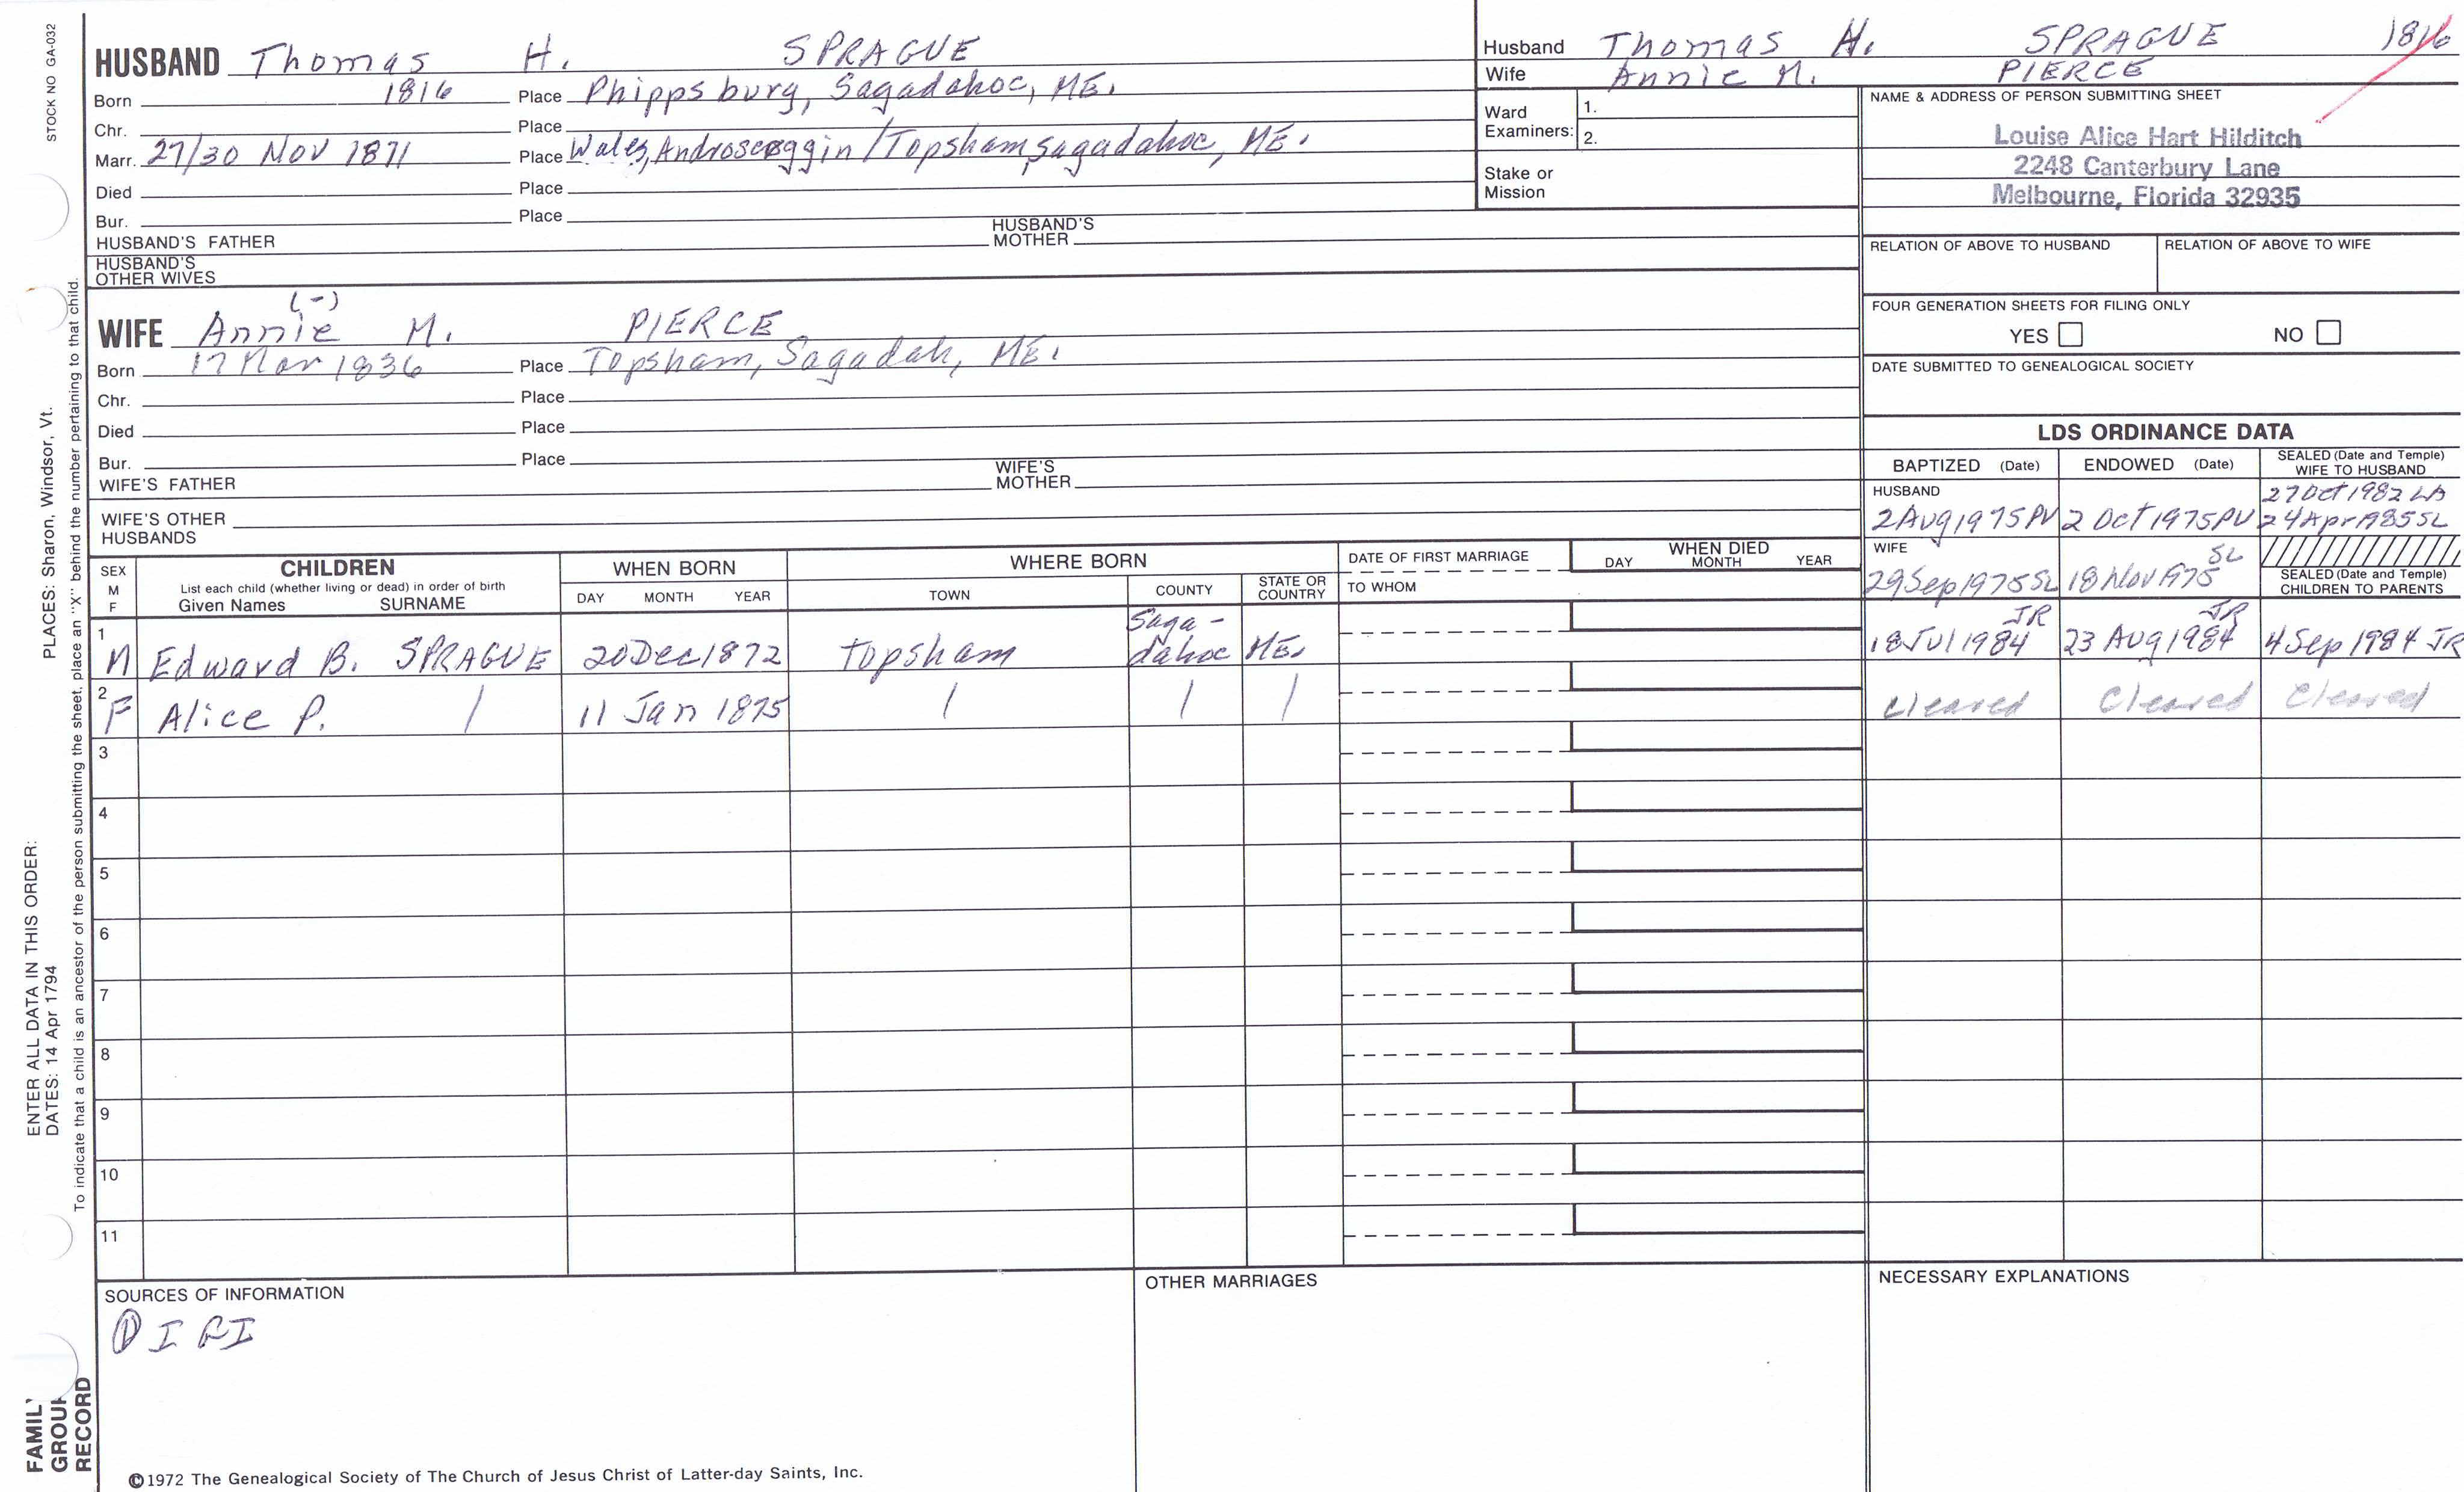 STOCK NO GA-032
PLACES: Sharon, Windsor, Vt.
ENTER ALL DATA IN THIS ORDER:
DATES: 14 Apr 1794
To indicate that a child is an ancestor of the person submitting the sheet, place an "X" behind the number pertaining to that child.
FAMIL
GROUP
RECORD
HUSBAND Thomas H. SPRAGUE
Born 1816 Place Phippsburg, Sagadahoc, ME.
Chr. Place
Marr. 27/30 Nov 1871 Place Wales, Androscoggin/Topsham, Sagadahoc, ME.
Died Place
Bur. Place
HUSBAND'S FATHER HUSBAND'S MOTHER
HUSBAND'S OTHER WIVES
(-)
WIFE Annie M. PIERCE
Born 17 Mar 1836 Place Topsham, Sagadah, ME.
Chr. Place
Died Place
Bur. Place
WIFE'S FATHER WIFE'S MOTHER
WIFE'S OTHER HUSBANDS
Husband Thomas H. SPRAGUE 1816
Wife Annie M. PIERCE
Ward Examiners: 1.
2.
Stake or Mission
NAME & ADDRESS OF PERSON SUBMITTING SHEET
Louise Alice Hart Hilditch
2248 Canterbury Lane
Melbourne, Florida 32935
RELATION OF ABOVE TO HUSBAND RELATION OF ABOVE TO WIFE
FOUR GENERATION SHEETS FOR FILING ONLY
YES NO
DATE SUBMITTED TO GENEALOGICAL SOCIETY
LDS ORDINANCE DATA
BAPTIZED (Date) ENDOWED (Date) SEALED (Date and Temple) WIFE TO HUSBAND
HUSBAND 27 Oct 1982 LA
2 Aug 1975 PV 2 Oct 1975 PV 24 Apr 1985 SL
WIFE
29 Sep 1975 SL 18 Nov 1975 SL
SEALED (Date and Temple) CHILDREN TO PARENTS
SEX M F CHILDREN WHEN BORN WHERE BORN DATE OF FIRST MARRIAGE WHEN DIED
List each child (whether living or dead) in order of birth
Given Names SURNAME DAY MONTH YEAR TOWN COUNTY STATE OR COUNTRY TO WHOM DAY MONTH YEAR
1 M Edward B. SPRAGUE 20 Dec 1872 Topsham Saga-dahoc ME. 18 Jul 1984 JR 23 Aug 1984 JR 4 Sep 1984 JR
2 F Alice P. / 11 Jan 1875 / / / cleared cleared cleared
3
4
5
6
7
8
9
10
11
SOURCES OF INFORMATION
① IGI
OTHER MARRIAGES
NECESSARY EXPLANATIONS
©1972 The Genealogical Society of The Church of Jesus Christ of Latter-day Saints, Inc.